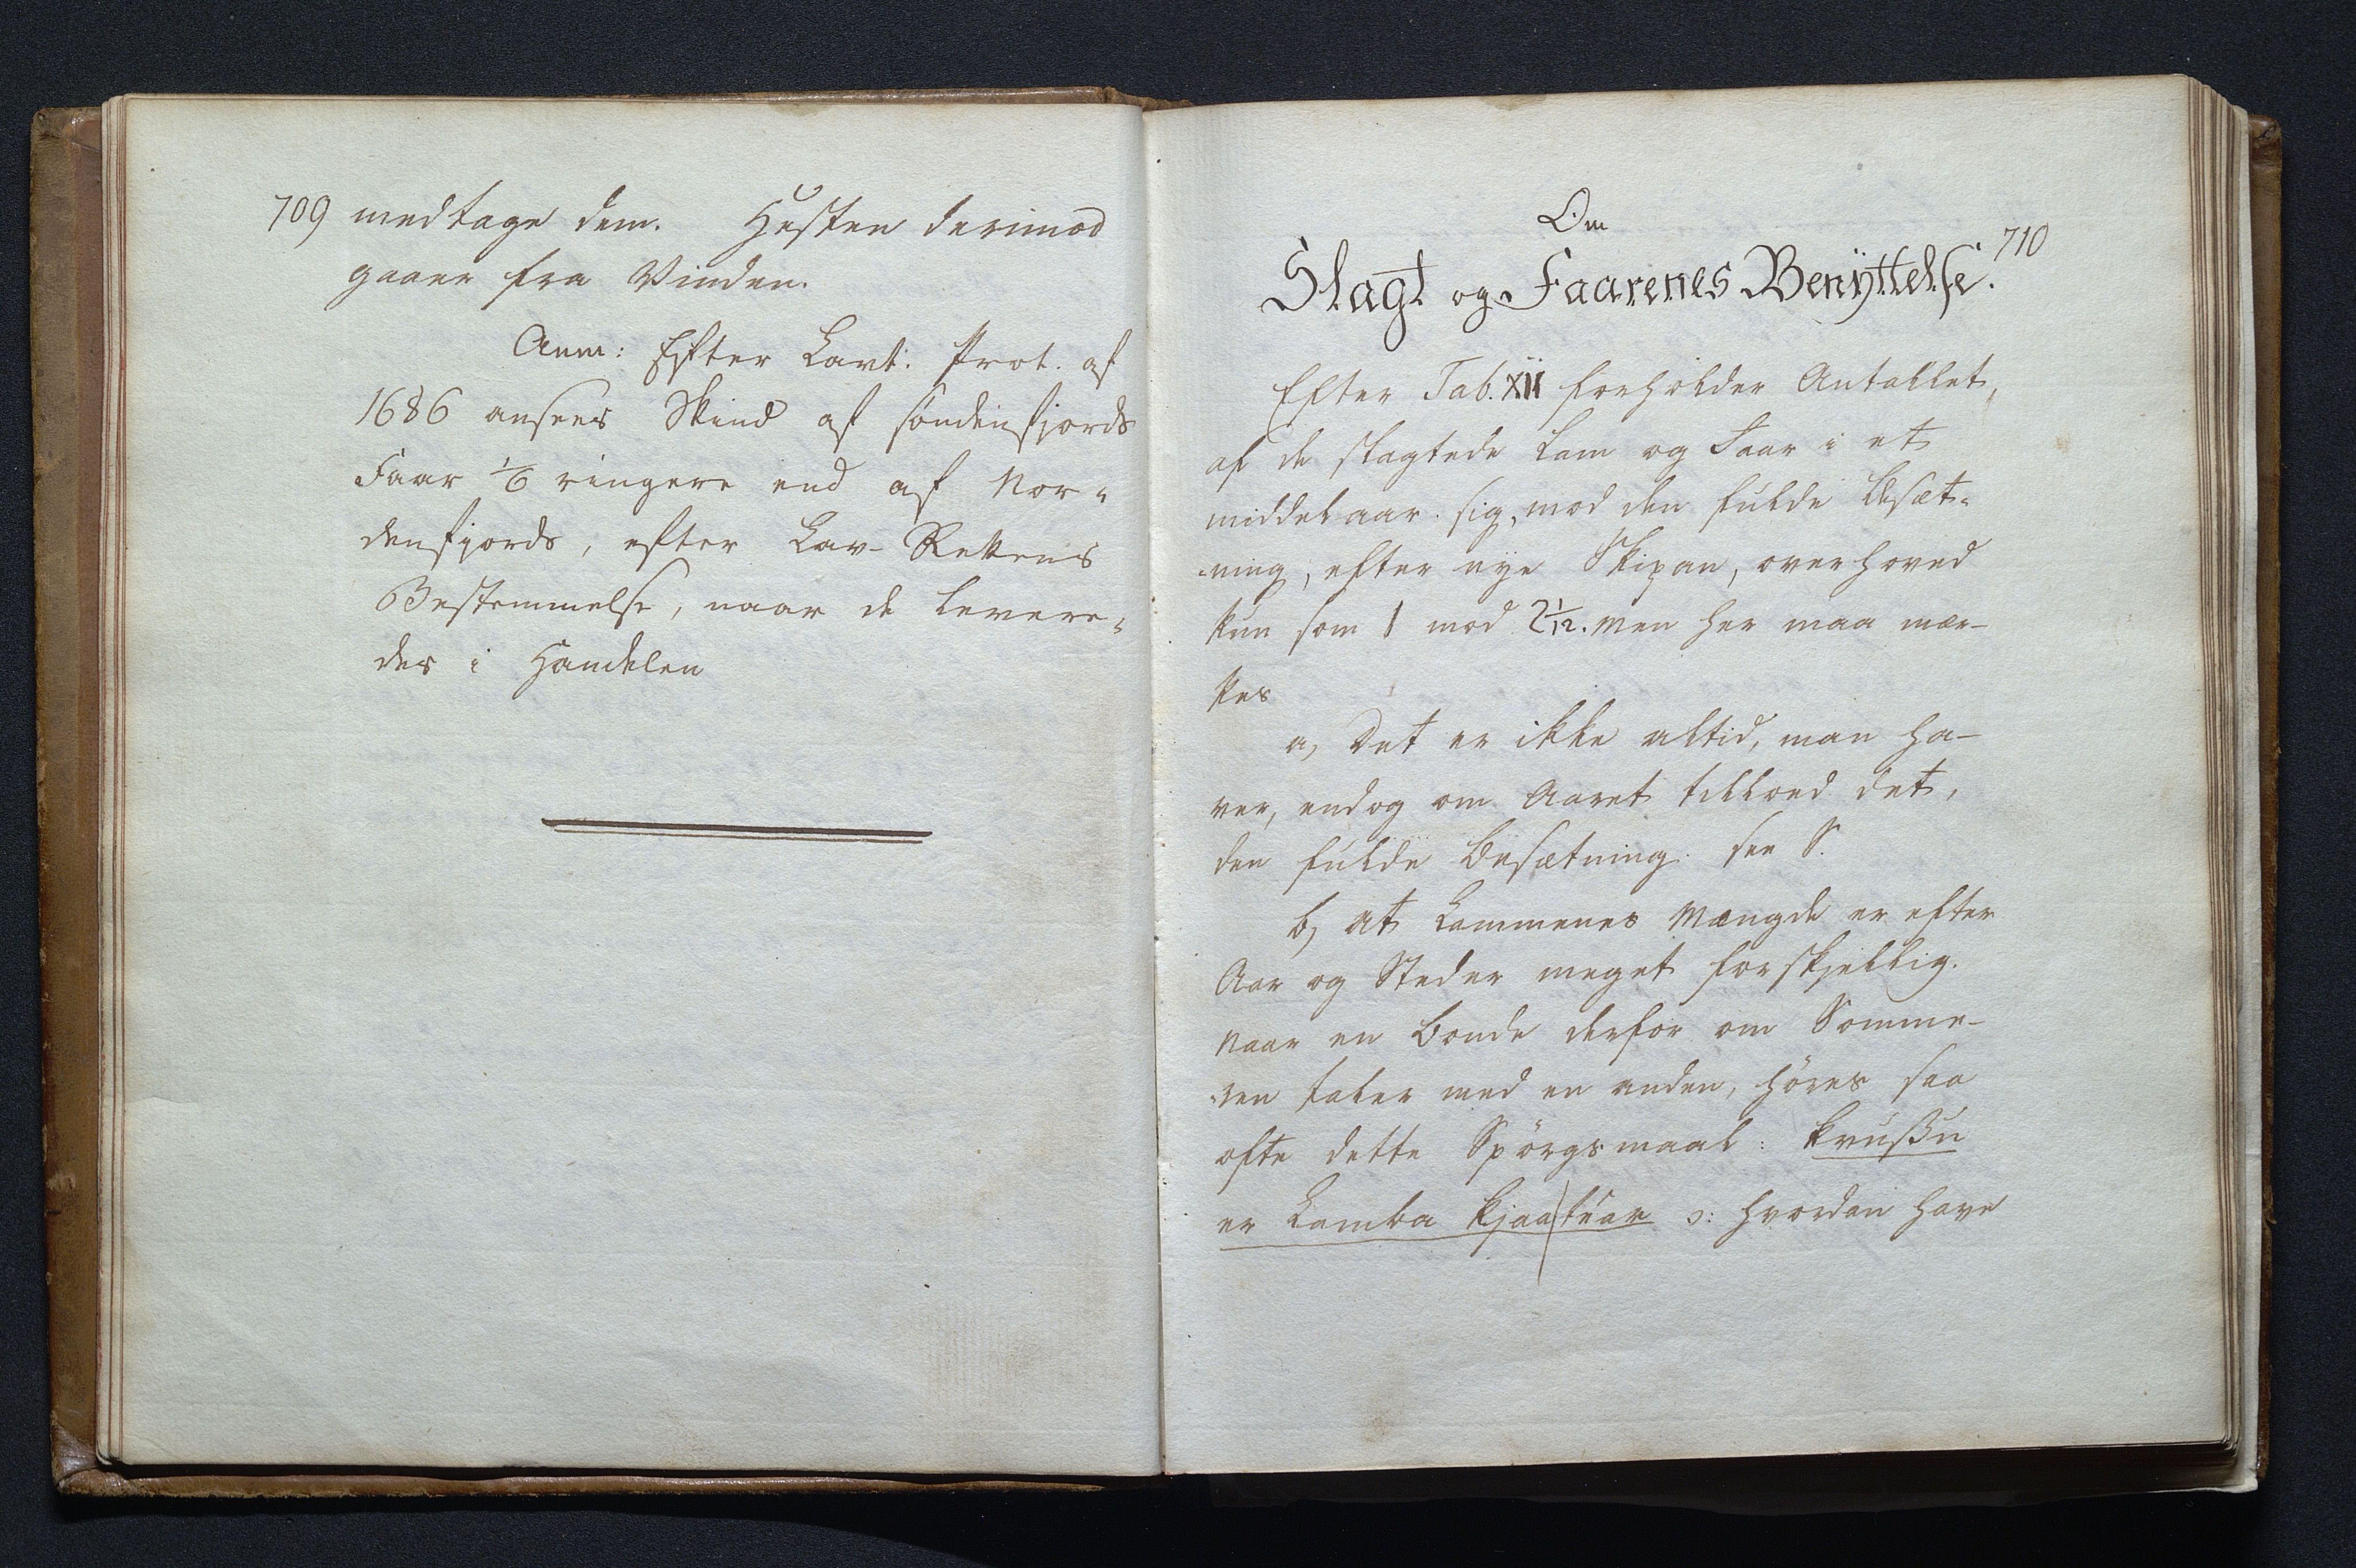 709 medtage dem. Hesten derimod
gaaer fra Vinden.
Anm: Efter Lavt: Prot. af
1686 ansees Skind af söndenfjords
Faar 1/6 ringere end af Nor-
denfjords, efter Lav-Rettens
Bestemmelse, naar de levere-
des i Handelen
710
Om
Slagt og Faarenes Benÿttelse.
Efter Tab. XII forholder Antallet,
af de slagtede Lam og Faar i et
middelaar sig, mod den fulde Besæt-
ning, efter nye Skipan, overhoved
kun som 1 mod 2 1/12. men her maa mær-
kes
a, Det er ikke altid, man ha-
ver, endog om Aaret tillod det,
den fulde Besætning. see S.
b, at Lammenes Mængde er efter
Aar og Steder meget forskjellig.
Naar en Bonde derfor om Somme-
ren taler med en anden, höres saa
ofte dette Spörgsmaal: krussu
er Lamba kjaatuar ɔ: hvordan have